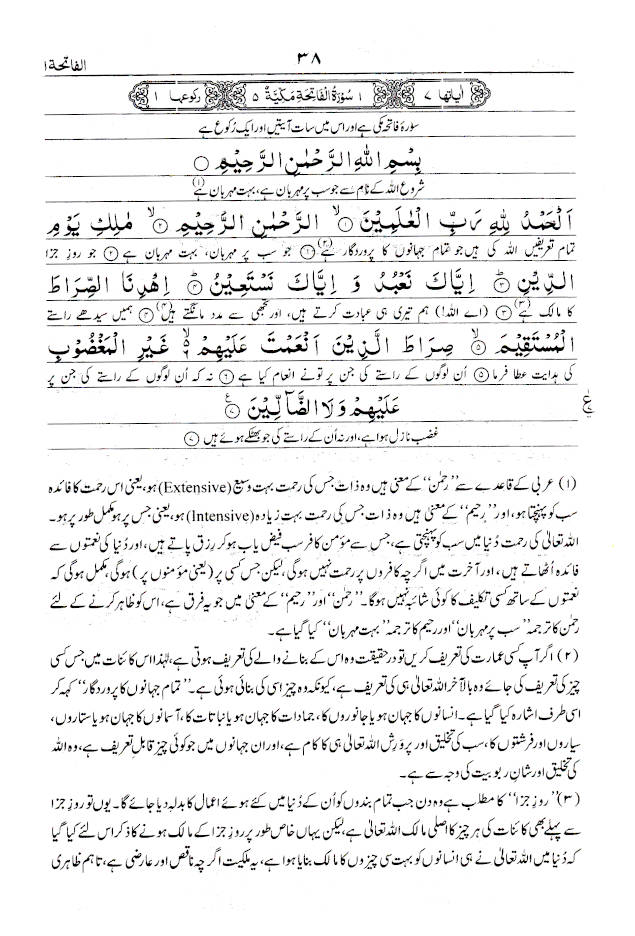 الفاتحة ۱
۳۸
اٰیاتها ۷
۱ سُوْرَةُ الْفَاتِحَةِ مَكِّيَّةٌ ۵
رکوعها ۱
سورۂ فاتحہ مکی ہے اور اس میں سات آیتیں اور ایک رُکوع ہے
بِسْمِ اللّٰهِ الرَّحْمٰنِ الرَّحِيْمِ ۝
شروع اللہ کے نام سے جو سب پر مہربان ہے، بہت مہربان ہے (۱)
اَلْحَمْدُ لِلّٰهِ رَبِّ الْعٰلَمِيْنَ ۙ﴿۱﴾ الرَّحْمٰنِ الرَّحِيْمِ ۙ﴿۲﴾ مٰلِكِ يَوْمِ
تمام تعریفیں اللہ کی ہیں جو تمام جہانوں کا پروردگار ہے (۲) ﴿۱﴾ جو سب پر مہربان، بہت مہربان ہے ﴿۲﴾ جو روزِ جزا
الدِّيْنِ ؕ﴿۳﴾ اِيَّاكَ نَعْبُدُ وَ اِيَّاكَ نَسْتَعِيْنُ ؕ﴿۴﴾ اِهْدِنَا الصِّرَاطَ
کا مالک ہے (۳) ﴿۳﴾ (اے اللہ!) ہم تیری ہی عبادت کرتے ہیں، اور تجھی سے مدد مانگتے ہیں (۴) ﴿۴﴾ ہمیں سیدھے راستے
الْمُسْتَقِيْمَ ۙ﴿۵﴾ صِرَاطَ الَّذِيْنَ اَنْعَمْتَ عَلَيْهِمْ ۙ﴿۶﴾ غَيْرِ الْمَغْضُوْبِ
کی ہدایت عطا فرما ﴿۵﴾ اُن لوگوں کے راستے کی جن پر تو نے انعام کیا ہے ﴿۶﴾ نہ کہ اُن لوگوں کے راستے کی جن پر
عَلَيْهِمْ وَلَا الضَّآلِّيْنَ ﴿۷﴾
غضب نازل ہوا ہے، اور نہ اُن کے راستے کی جو بھٹکے ہوئے ہیں ﴿۷﴾
(۱) عربی کے قاعدے سے ”رحمٰن“ کے معنی ہیں وہ ذات جس کی رحمت بہت وسیع (Extensive) ہو، یعنی اس رحمت کا فائدہ
سب کو پہنچتا ہو، اور ”رحیم“ کے معنی ہیں وہ ذات جس کی رحمت بہت زیادہ (Intensive) ہو، یعنی جس پر ہو مکمل طور پر ہو۔
اللہ تعالیٰ کی رحمت دُنیا میں سب کو پہنچتی ہے، جس سے مؤمن کافر سب فیض یاب ہوکر رزق پاتے ہیں، اور دُنیا کی نعمتوں سے
فائدہ اُٹھاتے ہیں، اور آخرت میں اگرچہ کافروں پر رحمت نہیں ہوگی، لیکن جس کسی پر (یعنی مؤمنوں پر) ہوگی، مکمل ہوگی کہ
نعمتوں کے ساتھ کسی تکلیف کا کوئی شائبہ نہیں ہوگا۔ ”رحمٰن“ اور ”رحیم“ کے معنی میں جو یہ فرق ہے، اس کو ظاہر کرنے کے لئے
رحمٰن کا ترجمہ ”سب پر مہربان“ اور رحیم کا ترجمہ ”بہت مہربان“ کیا گیا ہے۔
(۲) اگر آپ کسی عمارت کی تعریف کریں تو درحقیقت وہ اس کے بنانے والے کی تعریف ہوتی ہے، لہٰذا اس کائنات میں جس کسی
چیز کی تعریف کی جائے وہ بالآخر اللہ تعالیٰ ہی کی تعریف ہے، کیونکہ وہ چیز اسی کی بنائی ہوئی ہے۔ ”تمام جہانوں کا پروردگار“ کہہ کر
اسی طرف اشارہ کیا گیا ہے۔ انسانوں کا جہان ہو یا جانوروں کا، جمادات کا جہان ہو یا نباتات کا، آسمانوں کا جہان ہو یا ستاروں،
سیاروں اور فرشتوں کا، سب کی تخلیق اور پروَرِش اللہ تعالیٰ ہی کا کام ہے، اور ان جہانوں میں جو کوئی چیز قابلِ تعریف ہے، وہ اللہ
کی تخلیق اور شانِ ربوبیت کی وجہ سے ہے۔
(۳) ”روزِ جزا“ کا مطلب ہے وہ دن جب تمام بندوں کو اُن کے دُنیا میں کئے ہوئے اعمال کا بدلہ دیا جائے گا۔ یوں تو روزِ جزا
سے پہلے بھی کائنات کی ہر چیز کا اصلی مالک اللہ تعالیٰ ہے، لیکن یہاں خاص طور پر روزِ جزا کے مالک ہونے کا ذکر اس لئے کیا گیا
کہ دُنیا میں اللہ تعالیٰ نے ہی انسانوں کو بہت سی چیزوں کا مالک بنایا ہوا ہے، یہ ملکیت اگرچہ ناقص اور عارضی ہے، تاہم ظاہری